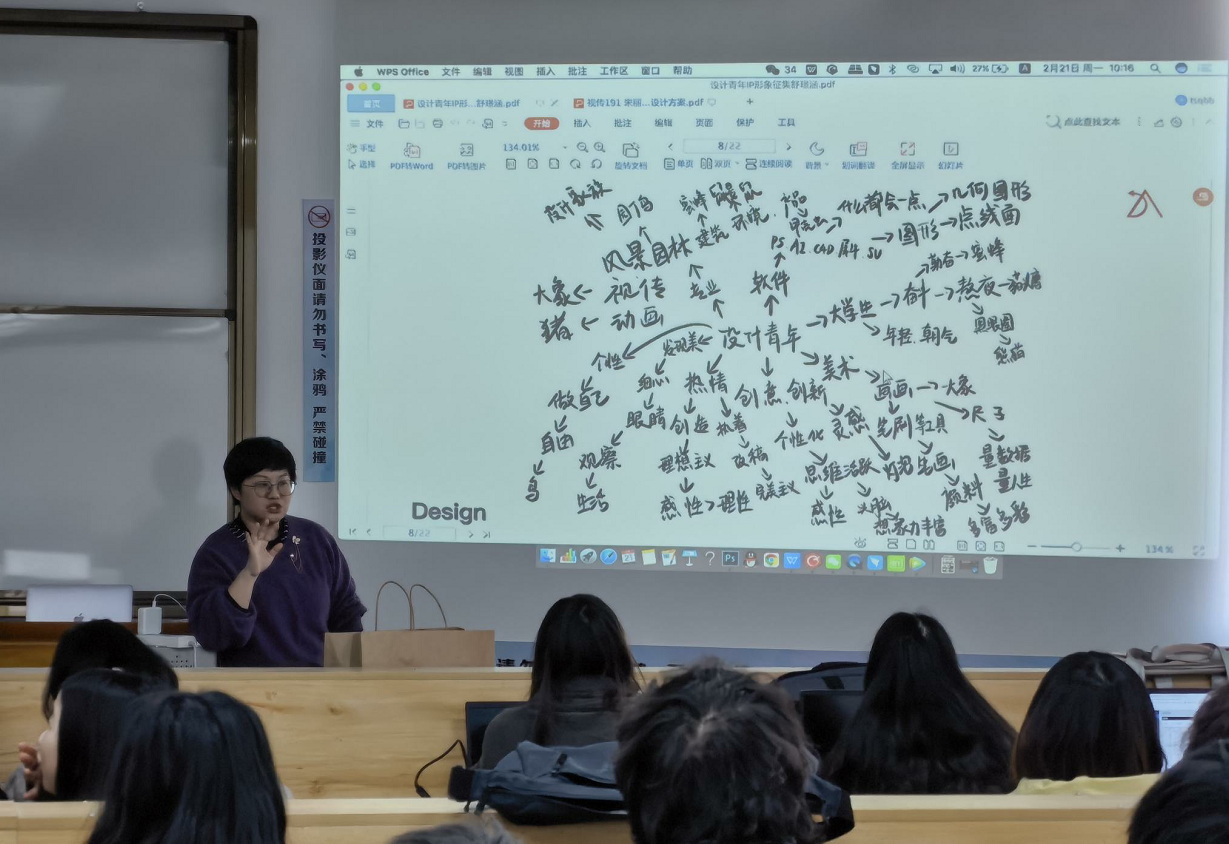 WPS Office 文件 编辑 视图 插入 批注 工作区 窗口 帮助 34 27% 2月21日 周一 10:16
设计青年IP形象征集舒璟涵.pdf
首页 设计青年IP形...舒璟涵.pdf 视传191 宋丽...设计方案.pdf
文件 开始 插入 批注 编辑 页面 保护 工具 点此查找文本
手型 选择 PDF转Word PDF转图片 134.01% 旋转文档 8/22 单页 双页 连续阅读 背景 划词翻译 全屏显示 幻灯片
设计家族 园丁鸟 蜜蜂 建筑 环境 什么都会一点 → 几何图形
PS AI CAD 犀牛 SU → 图形 → 点线面
风景园林 专业 软件 勤奋 → 蜜蜂
大象 ← 视传 大学生 → 奋斗 → 熬夜 → 荷塘
猪 ← 动画 设计青年 年轻.朝气 黑眼圈
熊猫
个性 发现美 美术
做自己 细心 热情 创意.创新 画画 → 大象
自由 眼睛 创造 执着 个性化 灵感 笔刷 等工具 尺子
鸟 观察 理想主义 改稿 思维活跃 量数据
生活 感性 > 理性 完美主义 感性 大脑 颜料 量人生
想象力丰富 多富多彩
Design
8/22 134%
投影仪面请勿书写、涂鸦 严禁碰撞